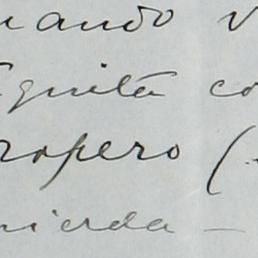 uando v
quita co
ropero (
uierda —